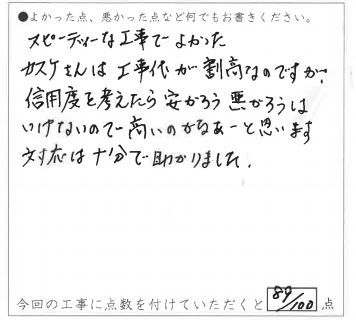 ●よかった点、悪かった点など何でもお書きください。
スピーディーな工事でよかった
ガスケさんは工事代が割高なのですが、
信用度を考えたら安かろう悪かろうは
いけないので高いのかなあーと思います
対応は十分で助かりました。
今回の工事に点数を付けていただくと 89/100 点